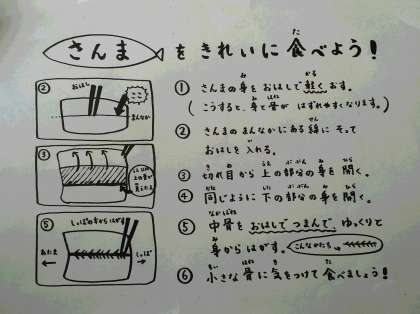 さんま を きれいに 食べよう!
① さんまの身をおはしで軽くおす。
(こうすると、身と骨が はずれやすくなります。)
② さんまの まんなかにある線に そって
おはしを入れる。
③ 切れ目から 上の部分の身を 開く。
④ 同じように 下の部分の 身を 開く。
⑤ 中骨を おはしで つまんで、ゆっくりと
身からはがす。 こんなかたち→
⑥ 小さな 骨に 気をつけて 食べましょう!
②
おはし
ここ
まんなか
③
⑤
しっぽの方からはがす
あたま
しっぽ